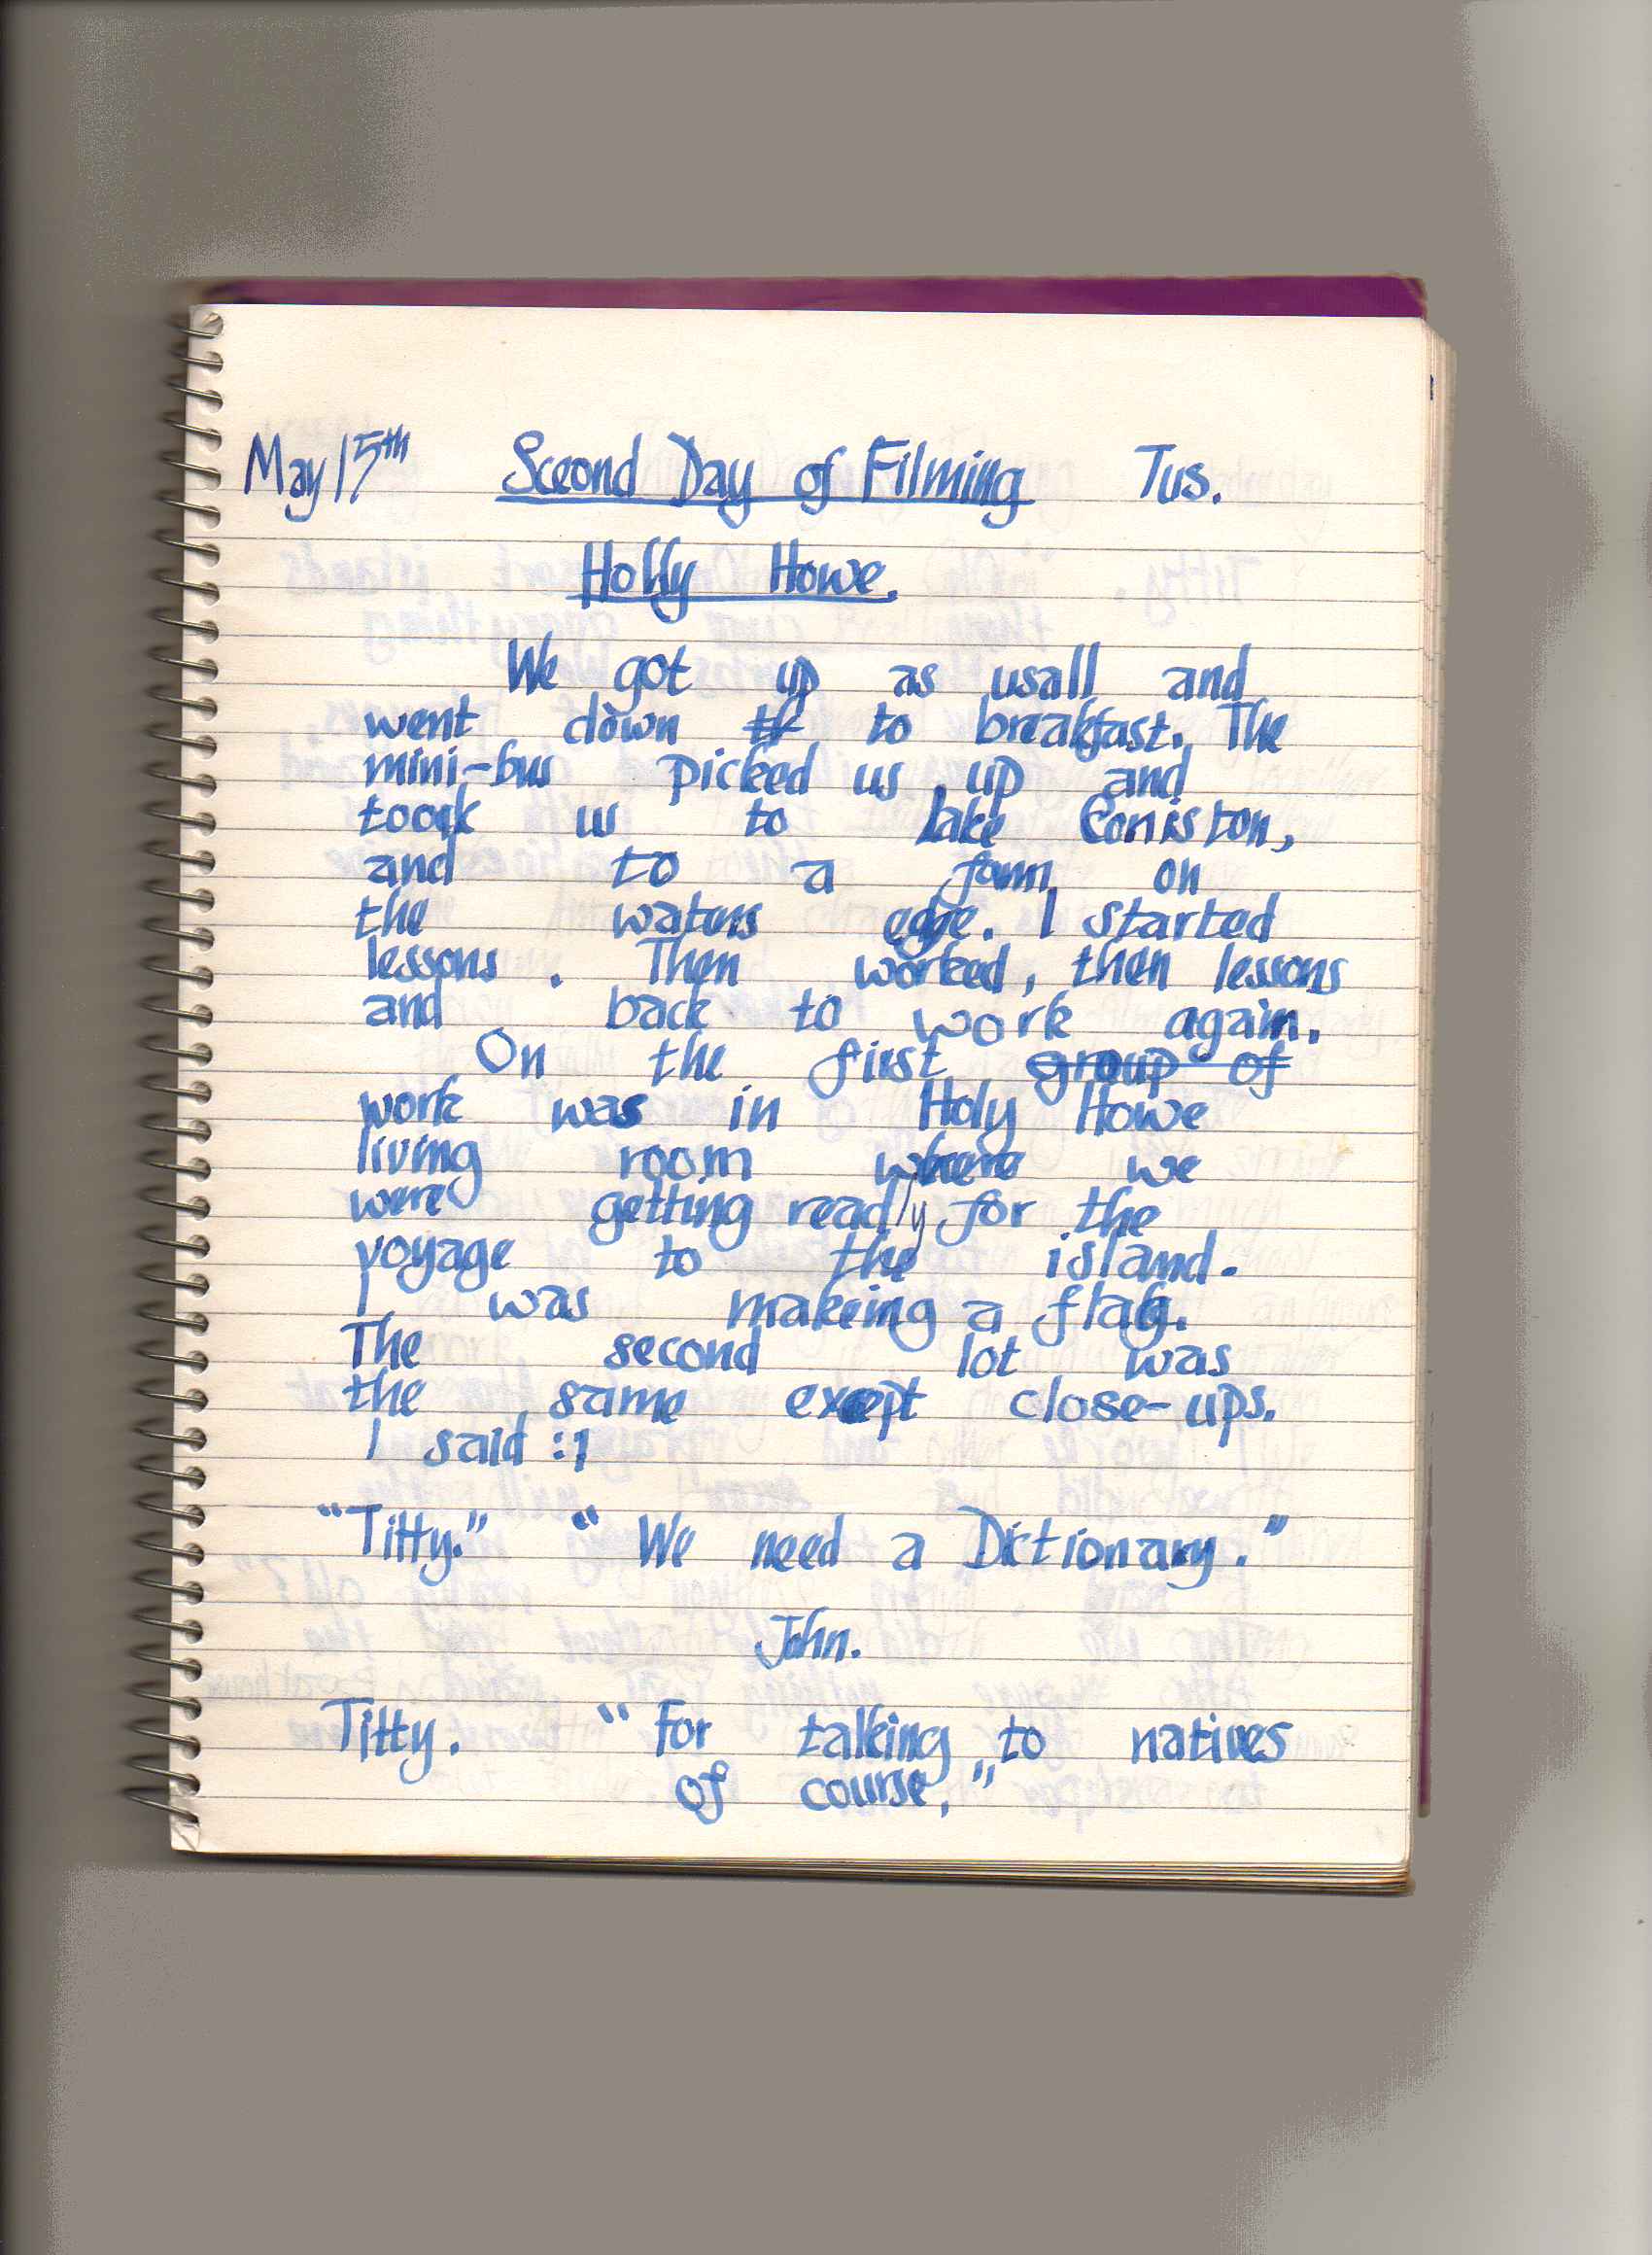 May 15th Sceond Day of Filming Tus.
Holly Howe.
We got up as usall and
went down th to breakfast. The
mini-bus picked us up and
toook us to Lake Coniston,
and to a farm on
the waters edge. I started
lessons. Then worked, then lessons
and back to work again.
On the first group of
work was in Holy Howe
living room where we
were getting ready for the
voyage to the island.
I was makeing a flag.
The second lot was
the same except close-ups.
I said :1
"Titty." "We need a Dictionary."
John.
Titty. "For talking to natives
of course."